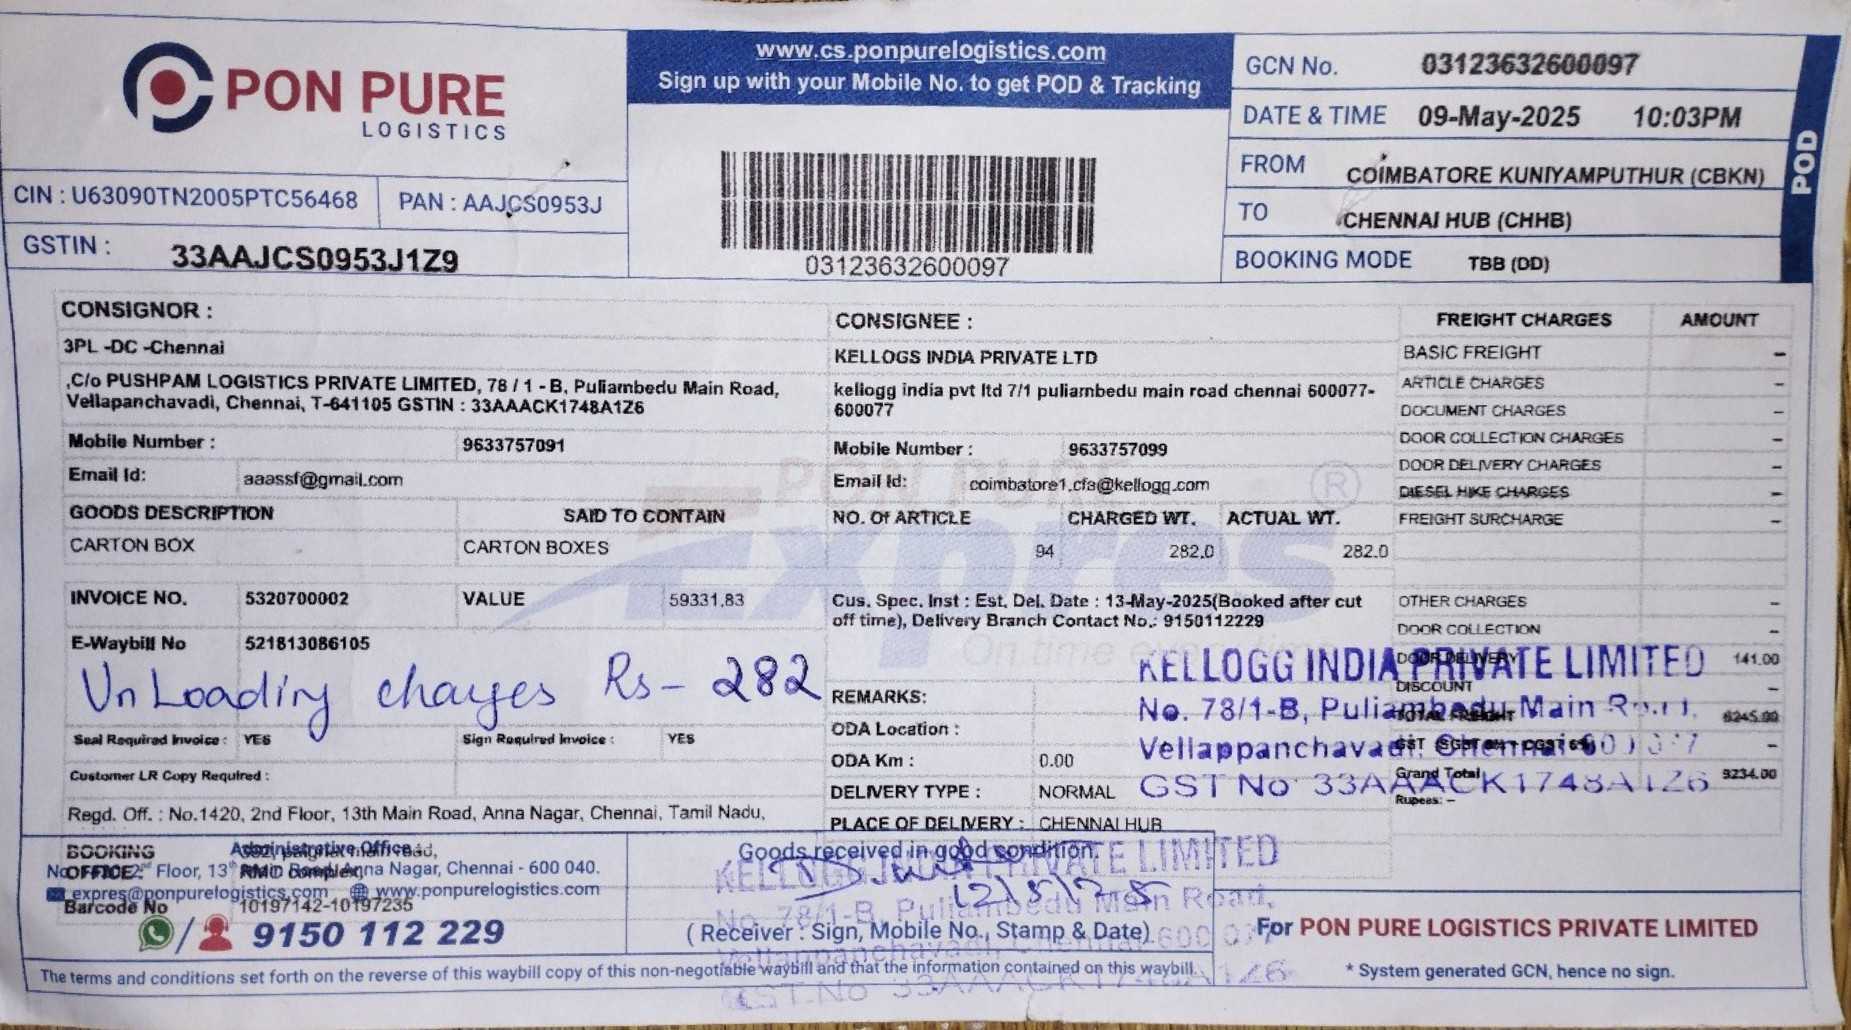 PON PURE
LOGISTICS
www.cs.ponpurelogistics.com
Sign up with your Mobile No. to get POD & Tracking
GCN No. 03123632600097
DATE & TIME 09-May-2025 10:03PM
FROM COIMBATORE KUNIYAMPUTHUR (CBKN)
TO CHENNAI HUB (CHHB)
BOOKING MODE TBB (DD)
POD
CIN : U63090TN2005PTC56468 PAN : AAJCS0953J
GSTIN : 33AAJCS0953J1Z9
03123632600097
CONSIGNOR :
3PL -DC -Chennai
,C/o PUSHPAM LOGISTICS PRIVATE LIMITED, 78 / 1 - B, Puliambedu Main Road,
Vellapanchavadi, Chennai, T-641105 GSTIN : 33AAACK1748A1Z6
Mobile Number : 9633757091
Email Id: aaassf@gmail.com
GOODS DESCRIPTION SAID TO CONTAIN
CARTON BOX CARTON BOXES
INVOICE NO. 5320700002 VALUE 59331.83
E-Waybill No 521813086105
UnLoading charges Rs- 282
Seal Required Invoice : YES Sign Required Invoice : YES
Customer LR Copy Required :
Regd. Off. : No.1420, 2nd Floor, 13th Main Road, Anna Nagar, Chennai, Tamil Nadu,
CONSIGNEE :
KELLOGS INDIA PRIVATE LTD
kellogg india pvt ltd 7/1 puliambedu main road chennai 600077-
600077
Mobile Number : 9633757099
Email Id: coimbatore1.cfa@kellogg.com
PON PURE
Expres
®
On time
NO. Of ARTICLE CHARGED WT. ACTUAL WT.
94 282.0 282.0
Cus. Spec. Inst : Est. Del. Date : 13-May-2025(Booked after cut
off time), Delivery Branch Contact No.: 9150112229
REMARKS:
ODA Location :
ODA Km : 0.00
DELIVERY TYPE : NORMAL
PLACE OF DELIVERY : CHENNAI HUB
FREIGHT CHARGES AMOUNT
BASIC FREIGHT –
ARTICLE CHARGES –
DOCUMENT CHARGES –
DOOR COLLECTION CHARGES –
DOOR DELIVERY CHARGES –
DIESEL HIKE CHARGES –
FREIGHT SURCHARGE –
OTHER CHARGES –
DOOR COLLECTION –
DOOR DELIVERY 141.00
DISCOUNT –
TOTAL FREIGHT
Grand Total 9234.00
Rupees: –
KELLOGG INDIA PRIVATE LIMITED
No. 78/1-B, Puliambedu Main Road,
Vellappanchavadi, Chennai
GST No 33AAACK1748A1Z6
BOOKING
OFFICE
Administrative Office
Floor, 13th Main Road, Anna Nagar, Chennai - 600 040.
expres@ponpurelogistics.com www.ponpurelogistics.com
Barcode No 10197142-10197235
9150 112 229
Goods received in good condition.
KELLOGG INDIA PRIVATE LIMITED
12/5/25
No. 78/1-B, Puliambedu Main Road,
(Receiver : Sign, Mobile No., Stamp & Date)
GST.No 33AAACK1748A1Z6
For PON PURE LOGISTICS PRIVATE LIMITED
The terms and conditions set forth on the reverse of this waybill copy of this non-negotiable waybill and that the information contained on this waybill.
* System generated GCN, hence no sign.